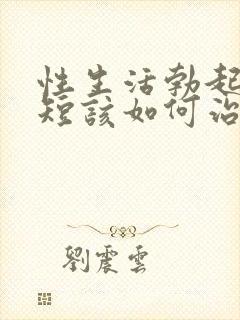 性生活勃起
短該如何治
劉震雲